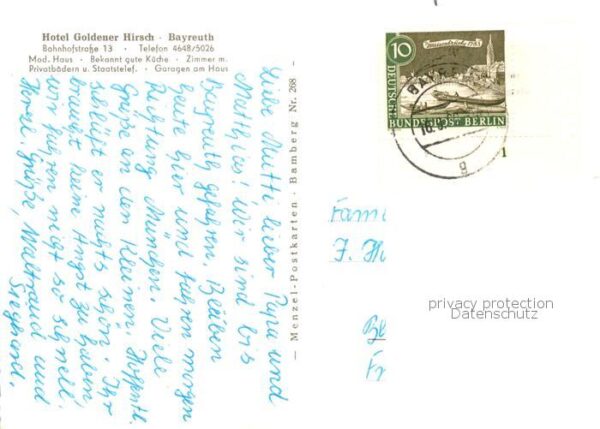 Hotel Goldener Hirsch · Bayreuth
Bahnhofstraße 13 · Telefon 4648/5026
Mod. Haus · Bekannt gute Küche · Zimmer m.
Privatbädern u. Staatstelef. · Garagen am Haus
Liebe Mutti lieber Papa und
Matthias! Wir sind bis
Bayreuth gefahren. Bleiben
heute hier und fahren morgen
Richtung München. Viele
Grüße an den Kleinen. Hoffentl.
schläft er nachts schön. Ihr
braucht keine Angst zu haben,
wir fahren nicht so schnell.
Herzl. Grüße, Waltraud und
Sieghard.
— Menzel-Postkarten · Bamberg Nr. 268 —
10
DEUTSCHE
BUNDESPOST BERLIN
BAYRE
g
1
Fami
J. M
Be
Fr
privacy protection
Datenschutz